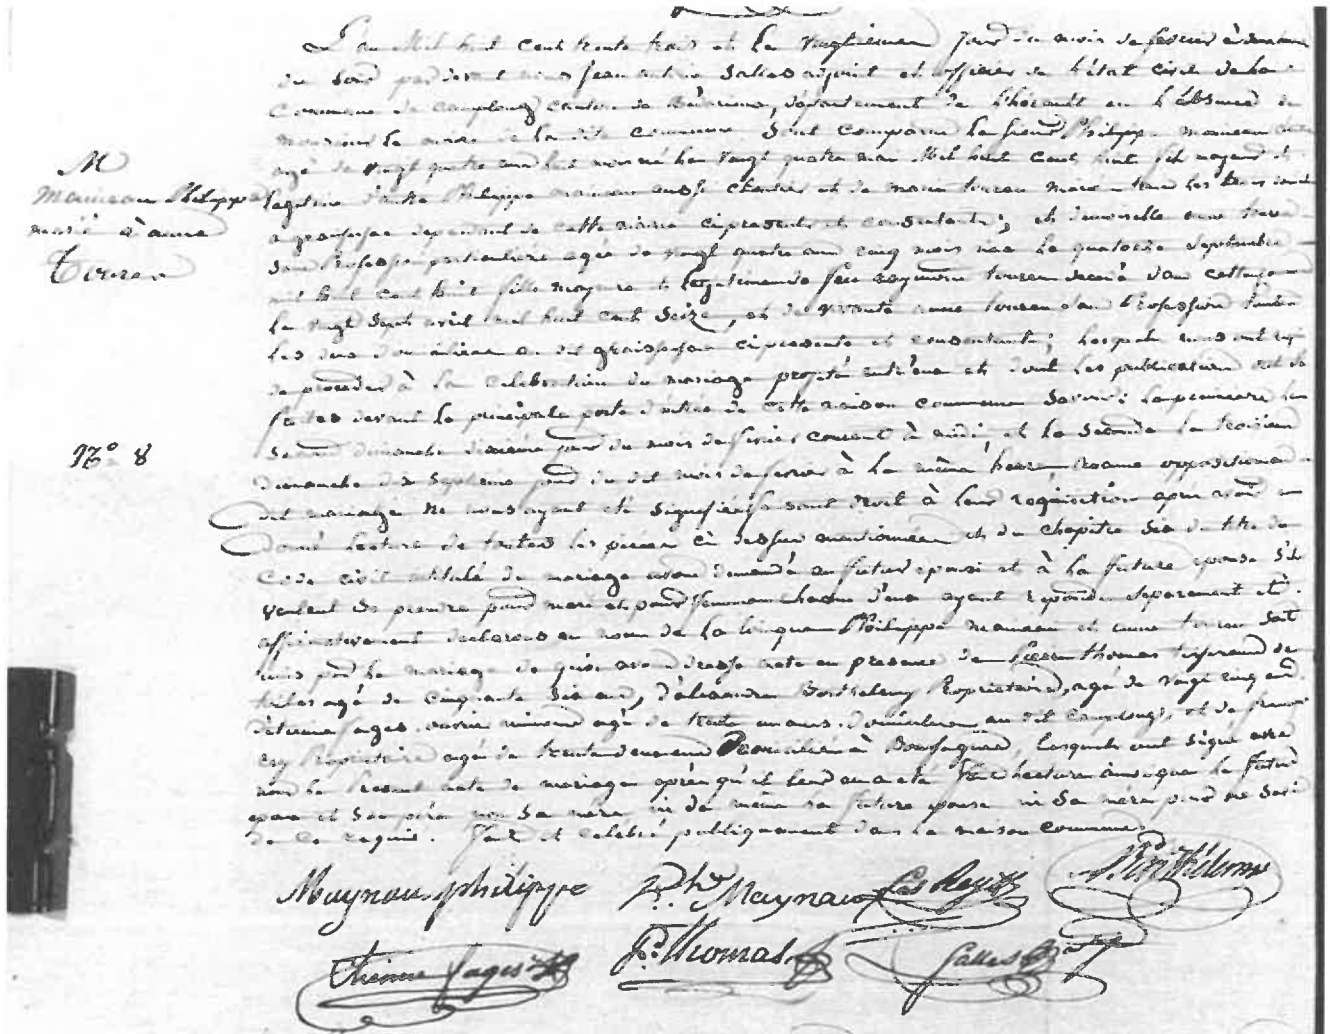 L'an Mil huit cent trente trois et le vingtieme jour du mois de fevrier à
du soir par devant nous Jean Salles adjoint et officier de l'état civil de la
Commune de camplong canton de Bédarieux, département de l'herault en l'absence de
monsieur le maire de la dite commune Sont comparus le sieur Philippe maineau
agé de vingt quatre ans huit mois né le vingt quatre mai Mil huit cent huit fils majeur et
legitime d'autre Philippe maineau aussi et de marie toureu mariés tous les trois
a graissessac dependant de cette mairie ci presents et consentants; et demoiselle anne toureu
Sans Profession particuliere agée de vingt quatre ans cinq mois née le quatorze Septembre
mil huit cent huit fille majeure et legitime de feu toureu decedé dans cette
le vingt Sept avril mil huit cent Seize, et de vivante anne toureu Sans Profession
les deux domiciliées au dit graissessac ci presente et consentante; lesquels nous ont requis
de proceder à la celebration du mariage projeté entr'eux et dont les publications ont été
faites devant la principale porte d'entrée de cette maison commune Savoir: la premiere le
Second dimanche dixieme jour du mois de fevrier courant à midi, et la Seconde le troisieme
dimanche dix Septieme jour du dit mois de fevrier à la même heure aucune opposition au
dit mariage ne nous ayant été Signifiée faisant droit à leur requisition après avoir
donné lecture de toutes les pieces ci dessus mentionnées et du chapitre Six du titre du
Code civil intitulé du mariage avons demandé au futur epoux et à la future epouse S'ils
veulent Se prendre pour mari et pour femme chacun d'eux ayant repondu Separement et
affirmativement declarons au nom de la loi que Philippe maineau et anne toureu Sont
unis par le mariage de quoi avons dressé acte en presence de pierre thomas tisserand de
toiles agé de cinquante Six ans, d'alexandre Barthelemy Proprietaire, agé de vingt cinq ans
d'etienne fages ouvrier mineur agé de trente un ans domiciliés au dit camplong, et de
Proprietaire agé de trente domicilié à Boussagues, lesquels ont Signé avec
nous le Present acte de mariage après qu'il leur en a été fait lecture ainsi que le futur
epoux et Son père non Sa mère ni de même la future epouse ni Sa mère pour ne Savoir
de ce requis. Fait et celebré publiquement dans la maison commune
M
maineau Philippe
marié à anne
Toureu
N° 8
Maynau philippe Ph. Maynau Barthélemy
Etienne fages P. Thomas Salles